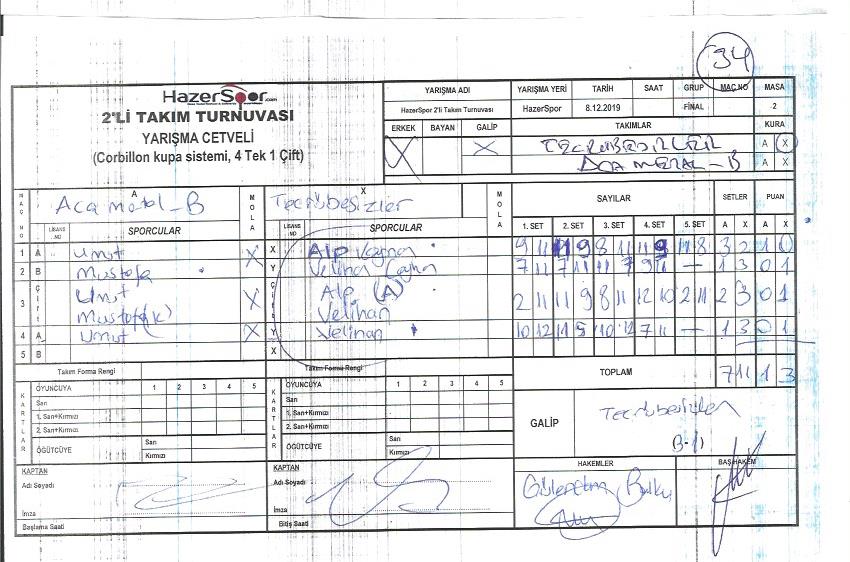 34
HazerSpor.com
2'Lİ TAKIM TURNUVASI
YARIŞMA CETVELİ
(Corbillon kupa sistemi, 4 Tek 1 Çift)
YARIŞMA ADI YARIŞMA YERİ TARİH SAAT GRUP MAÇ NO MASA
HazerSpor 2'li Takım Turnuvası HazerSpor 8.12.2019 FİNAL 2
ERKEK BAYAN GALİP TAKIMLAR KURA
X X TECRÜBESİZLER A X
ACA METAL-B A X
MAÇ NO A MOLA X MOLA SAYILAR SETLER PUAN
Aca metal-B Tecrübesizler
LİSANS NO SPORCULAR LİSANS NO SPORCULAR 1. SET 2. SET 3. SET 4. SET 5. SET A X A X
1 A Umut X X Alp 9 11 11 9 8 11 11 9 11 8 3 2 1
2 B Mustafa Y Velihan 7 11 7 11 11 7 9 11 — 1 3 0 1
3 ÇİFT Umut X ÇİFT Alp (A) 2 11 11 9 8 11 12 10 2 11 2 3 0 1
Mustafa (k) Velihan
4 A Umut X Y Velihan 10 12 11 5 10 12 7 11 — 1 3 0 1
5 B X
Takım Forma Rengi Takım Forma Rengi TOPLAM 7 11 1 3
KARTLAR OYUNCUYA 1 2 3 4 5 KARTLAR OYUNCUYA 1 2 3 4 5
Sarı Sarı
1. Sarı+Kırmızı 1. Sarı+Kırmızı
2. Sarı+Kırmızı 2. Sarı+Kırmızı
ÖĞÜTCÜYE Sarı ÖĞÜTCÜYE Sarı
Kırmızı Kırmızı
GALİP Tecrübesizler
(3-1)
KAPTAN KAPTAN HAKEMLER BAŞ HAKEM
Adı Soyadı Adı Soyadı
İmza İmza
Başlama Saati Bitiş Saati